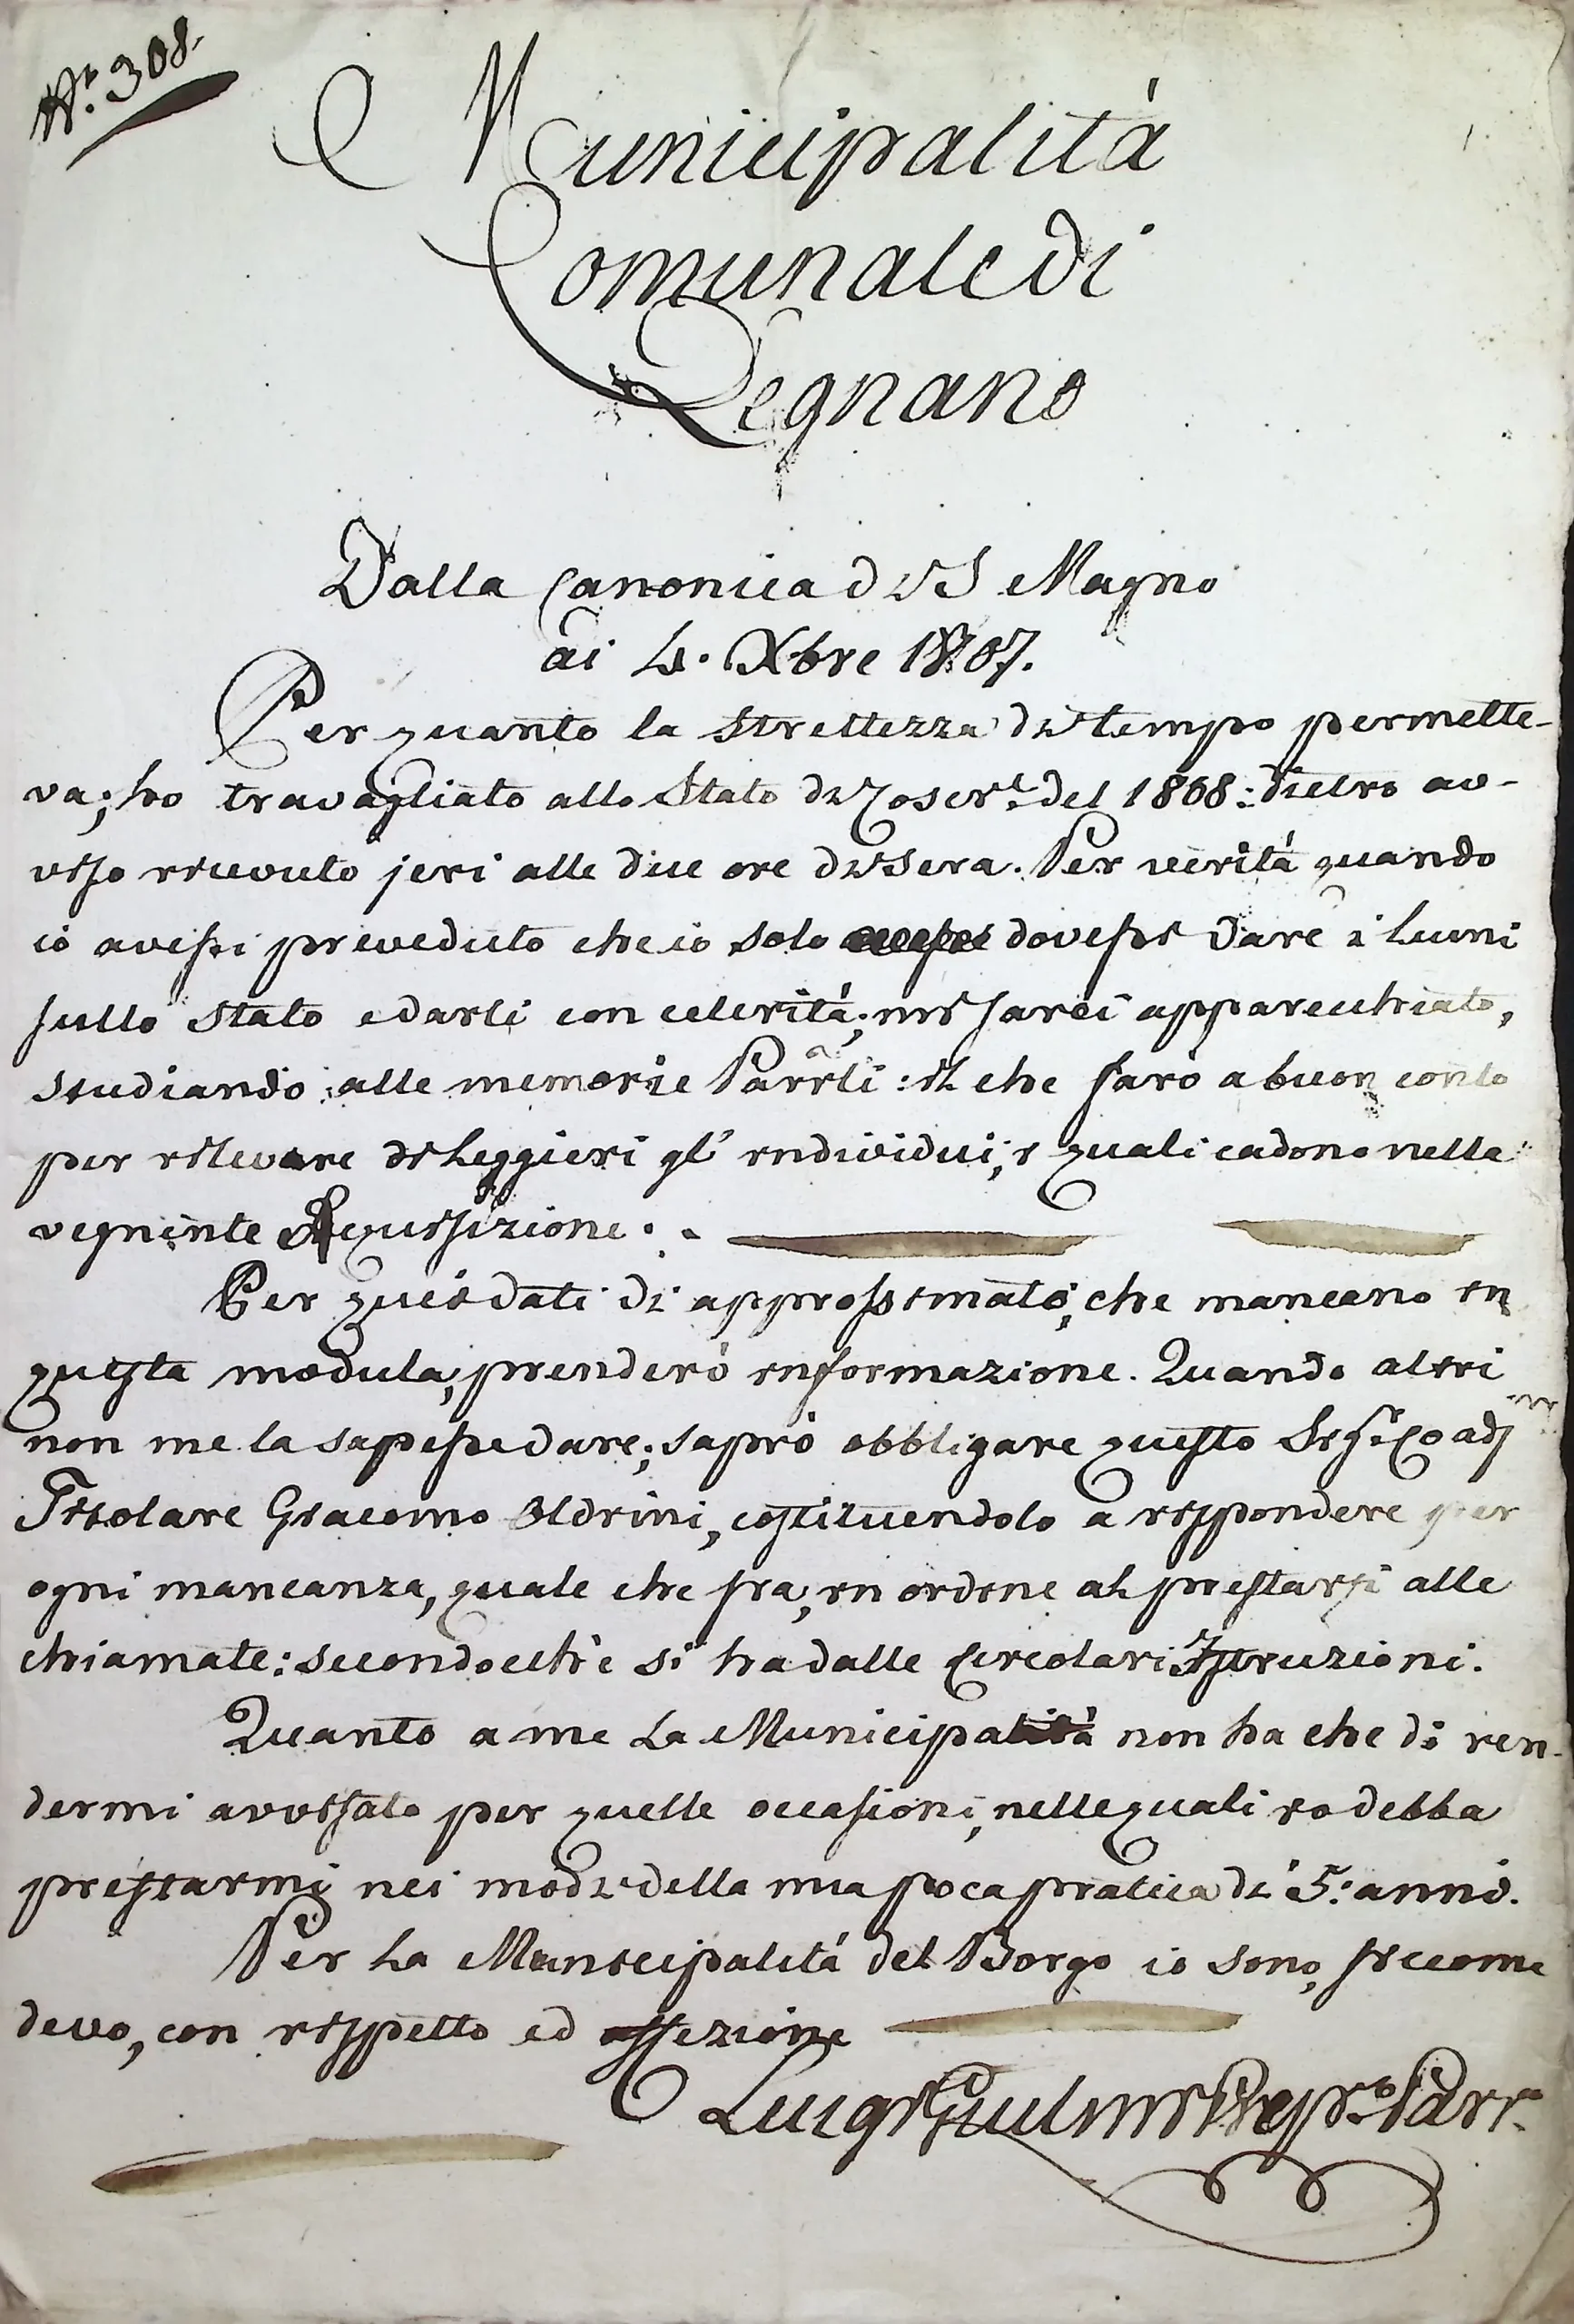 N.° 308.
Municipalitá
Comunale di
Legnano
Dalla Canonica di S Magno
ai 4. Xbre 1807.
Per quanto la strettezza di tempo permette-
va; ho travagliato allo Stato di Coscr.ti del 1808: dietro av-
viso ricevuto jeri alle due ore di sera. Per veritá quando
io avessi preveduto che io solo dovessi dare i lumi
sullo stato e darli con celeritá; mi sarei apparecchiato,
studiando alle memorie Parrli: il che farò a buon conto
per rilevare di leggieri gl' individui, i quali cadono nella
vegnente Requisizione.
Per quei dati di approssimato, che mancano in
questa modula, prenderò informazione. Quando altri
non me la sapesse dare; saprò obbligare questo Sig.r Coadj
Titolare Giacomo Oldrini, costituendolo a rispondere per
ogni mancanza, quale che sia, in ordine al prestarsi alle
chiamate: secondocchè si ha dalle Circolari Istruzioni.
Quanto a me La Municipalitá non ha che di ren-
dermi avvisato per quelle occasioni, nelle quali io debba
prestarmi nei modi della mia poca pratica di 5: anni.
Per La Municipalitá del Borgo io sono, siccome
devo, con rispetto ed affezione
Luigi Prep.° Parr.